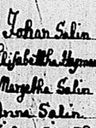 Johan Salin
Elisabettha Hayman
Margetha Salin
Anna Salin